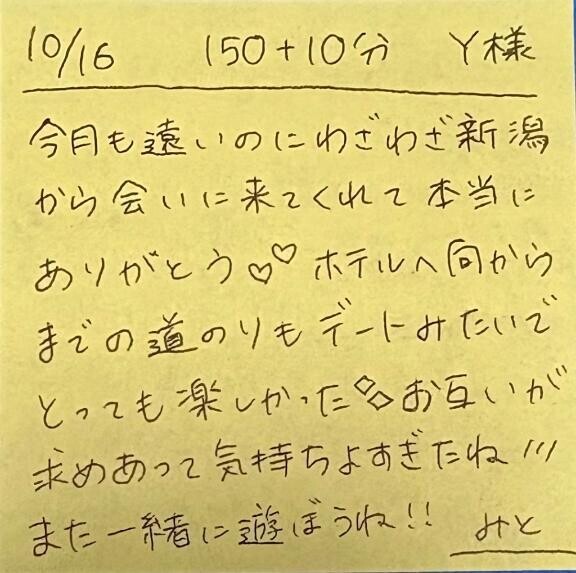 10/16 150+10分 Y様
今月も遠いのにわざわざ新潟
から会いに来てくれて本当に
ありがとう♡♡ ホテルへ向から
までの道のりもデートみたいで
とっても楽しかった◇◇お互いが
求めあって気持ちよすぎたね///
また一緒に遊ぼうね!! みと